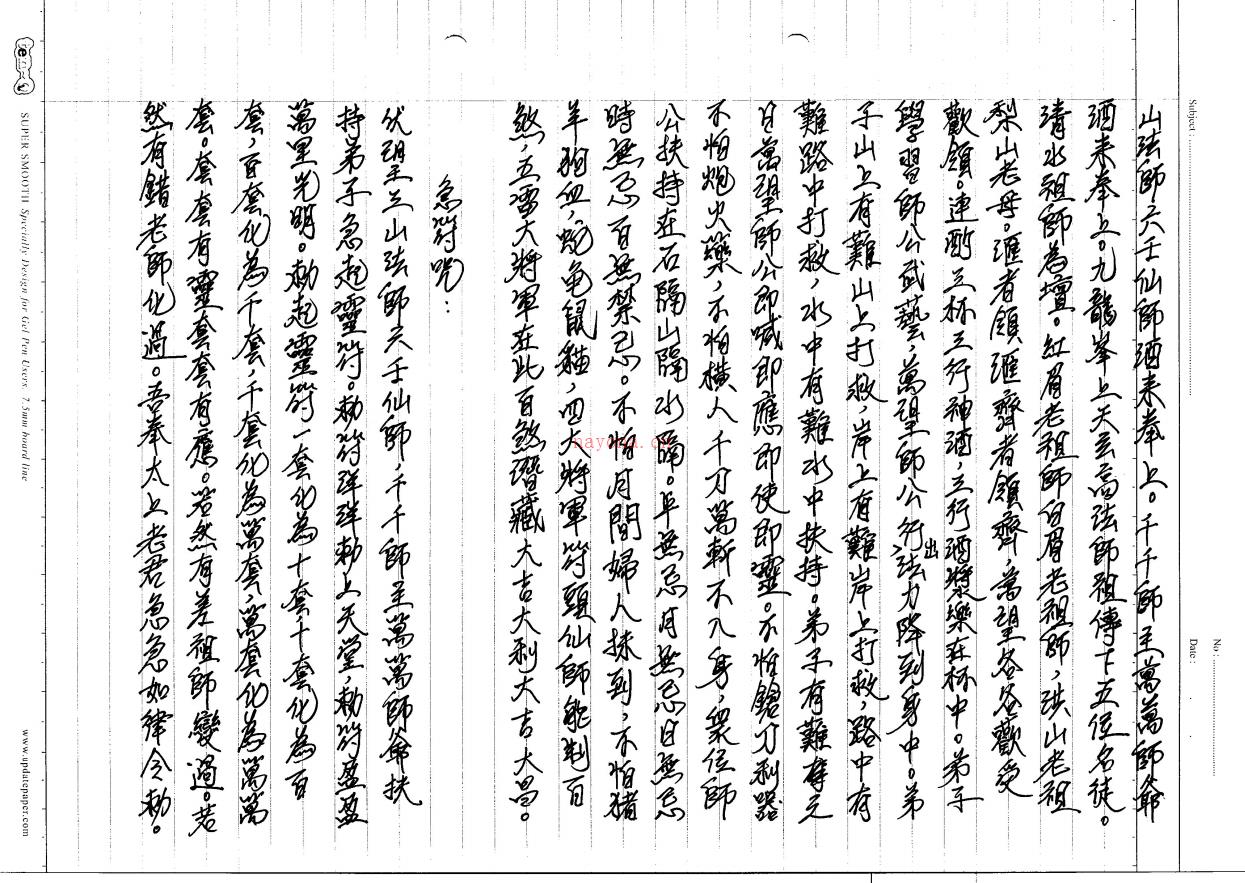 山法師六壬仙師酒来奉上。千千師主萬萬師爺
酒来奉上。九龍峯上天玄高法師祖傳下五位名徒。
清水祖師為壇。紅眉老祖師白眉老祖師,洪山老祖
梨山老母。滙者領滙齊者領齊,萬望各各歡受
歡領。連酌三杯三行神酒,三行酒漿樂在杯中。弟子
學習師公武藝,萬望師公行出法力降到身中。弟
子山上有難山上打救,岸上有難岸上打救,路中有
難路中打救,水中有難水中扶持。弟子有難春元
日萬望師公即喊即應即使即靈。不怕鎗刀利器
不怕炮火藥,不怕橫人千刀萬斬不入身,衆位師
公扶持在石隔山隔水隔。年無忌月無忌日無忌
時無忌百無禁忌。不怕月間婦人抹到,不怕猪
羊狗血,蛇龟鼠貓,四大將軍符頭仙師能制百
煞,五雷大將軍在此百煞潛藏大吉大利大吉大昌。
急符咒:
伏望主三山法師六壬仙師,千千師主萬萬師爺扶
持弟子急起靈符。勅符洋洋勅上天堂,勅符盈盈
萬里光明。勅起靈符一套化為十套,十套化為百
套,百套化為千套,千套化為萬套,萬套化為萬萬
套。套套有靈套套有應。若然有差祖師變過。若
然有錯老師化過。吾奉太上老君急急如律令勅。
Subject :
No :
Date :
SUPER SMOOTH Specially Design for Gel Pen Users. 7.5mm board line
www.updatepaper.com